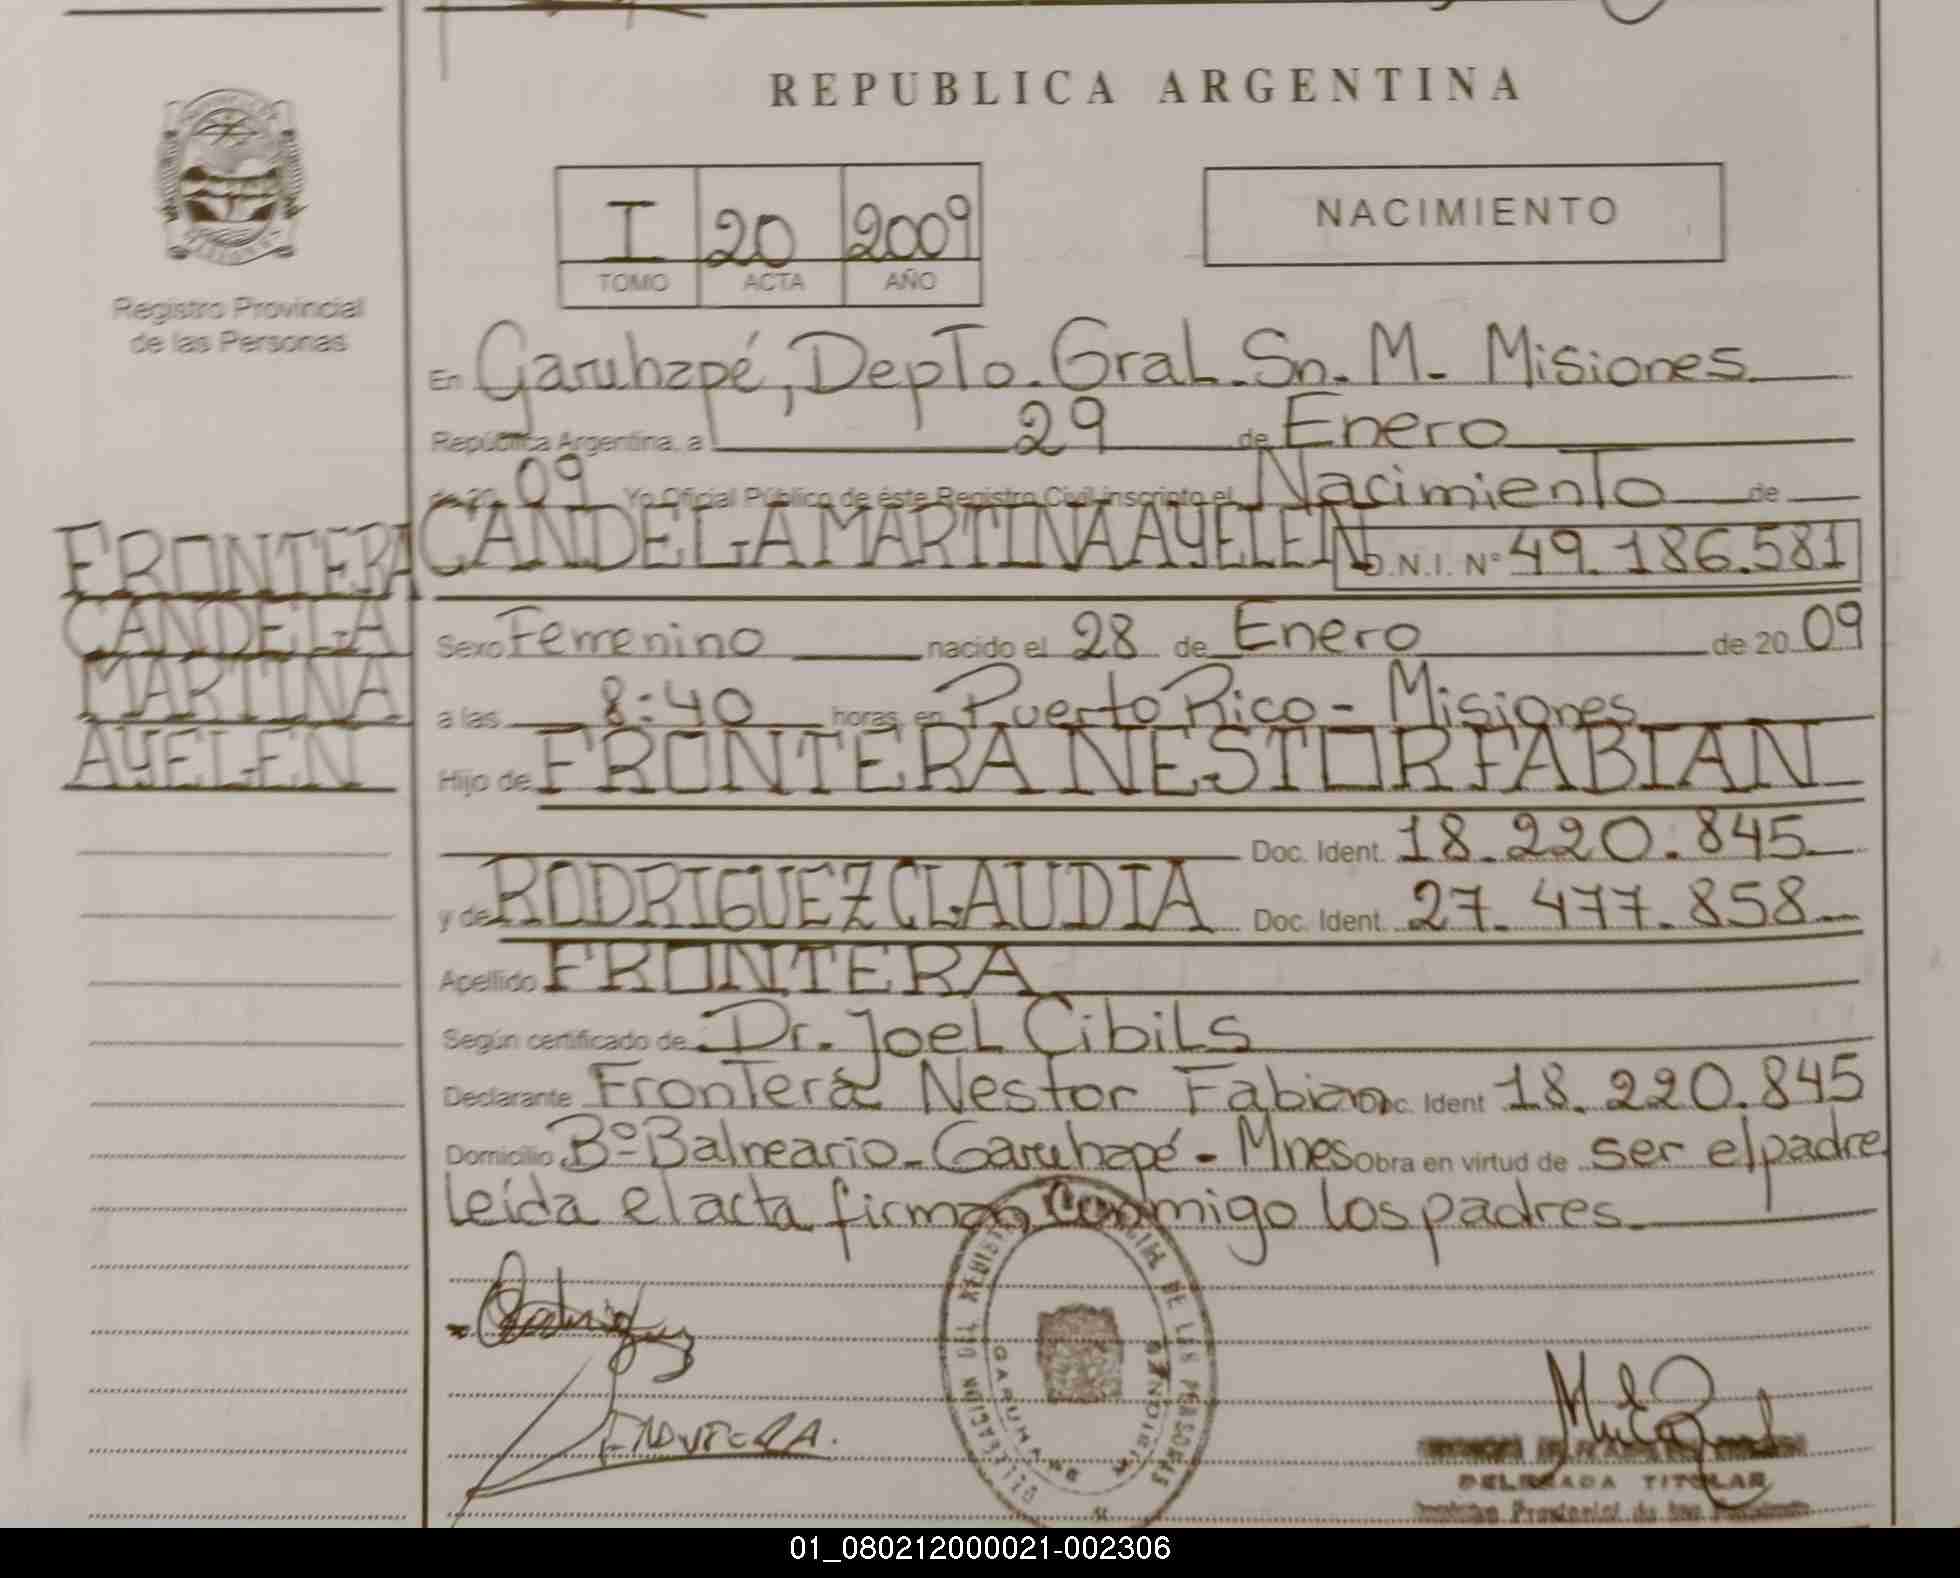 REPUBLICA ARGENTINA
I 20 2009
TOMO ACTA AÑO
NACIMIENTO
Registro Provincial
de las Personas
En Garuhapé, Depto. Gral. Sn. M. Misiones
República Argentina, a 29 de Enero
de 20 09 Yo Oficial Público de éste Registro Civil inscripto el Nacimiento de
CANDELA MARTINA AYELEN D.N.I. Nº 49.186.581
FRONTERA
CANDELA
MARTINA
AYELEN
Sexo Femenino nacido el 28 de Enero de 20 09
a las 8:40 horas en Puerto Rico - Misiones
Hijo de FRONTERA NESTOR FABIAN
Doc. Ident. 18.220.845
y de RODRIGUEZ CLAUDIA Doc. Ident. 27.477.858
Apellido FRONTERA
Según certificado de Dr. Joel Cibils
Declarante Frontera Nestor Fabian Doc. Ident 18.220.845
Domicilio Bº Balneario - Garuhapé - Mnes Obra en virtud de ser el padre
leída el acta firman conmigo los padres
FRONTERA.
DE LAS PERSONAS
GARUHAPE MISIONES
DELEGADA TITULAR
01_080212000021-002306